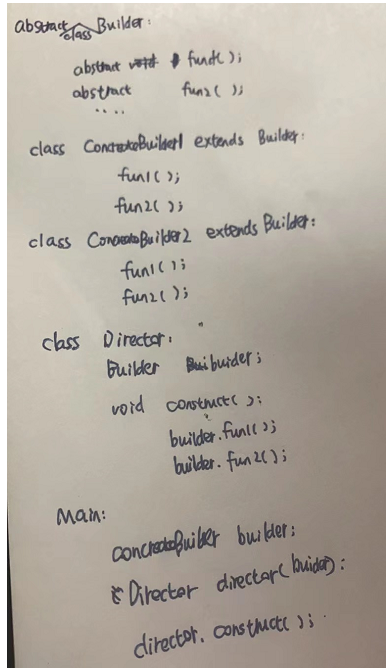 abstract class Builder:
abstract void fun1();
abstract fun2();
....
class ConcreteBuilder1 extends Builder:
fun1();
fun2();
class ConcreteBuilder2 extends Builder:
fun1();
fun2();
class Director:
Builder buider;
void construct();
builder.fun1();
builder.fun2();
Main:
concreteBuilder builder;
Director director(buider):
director.construct();